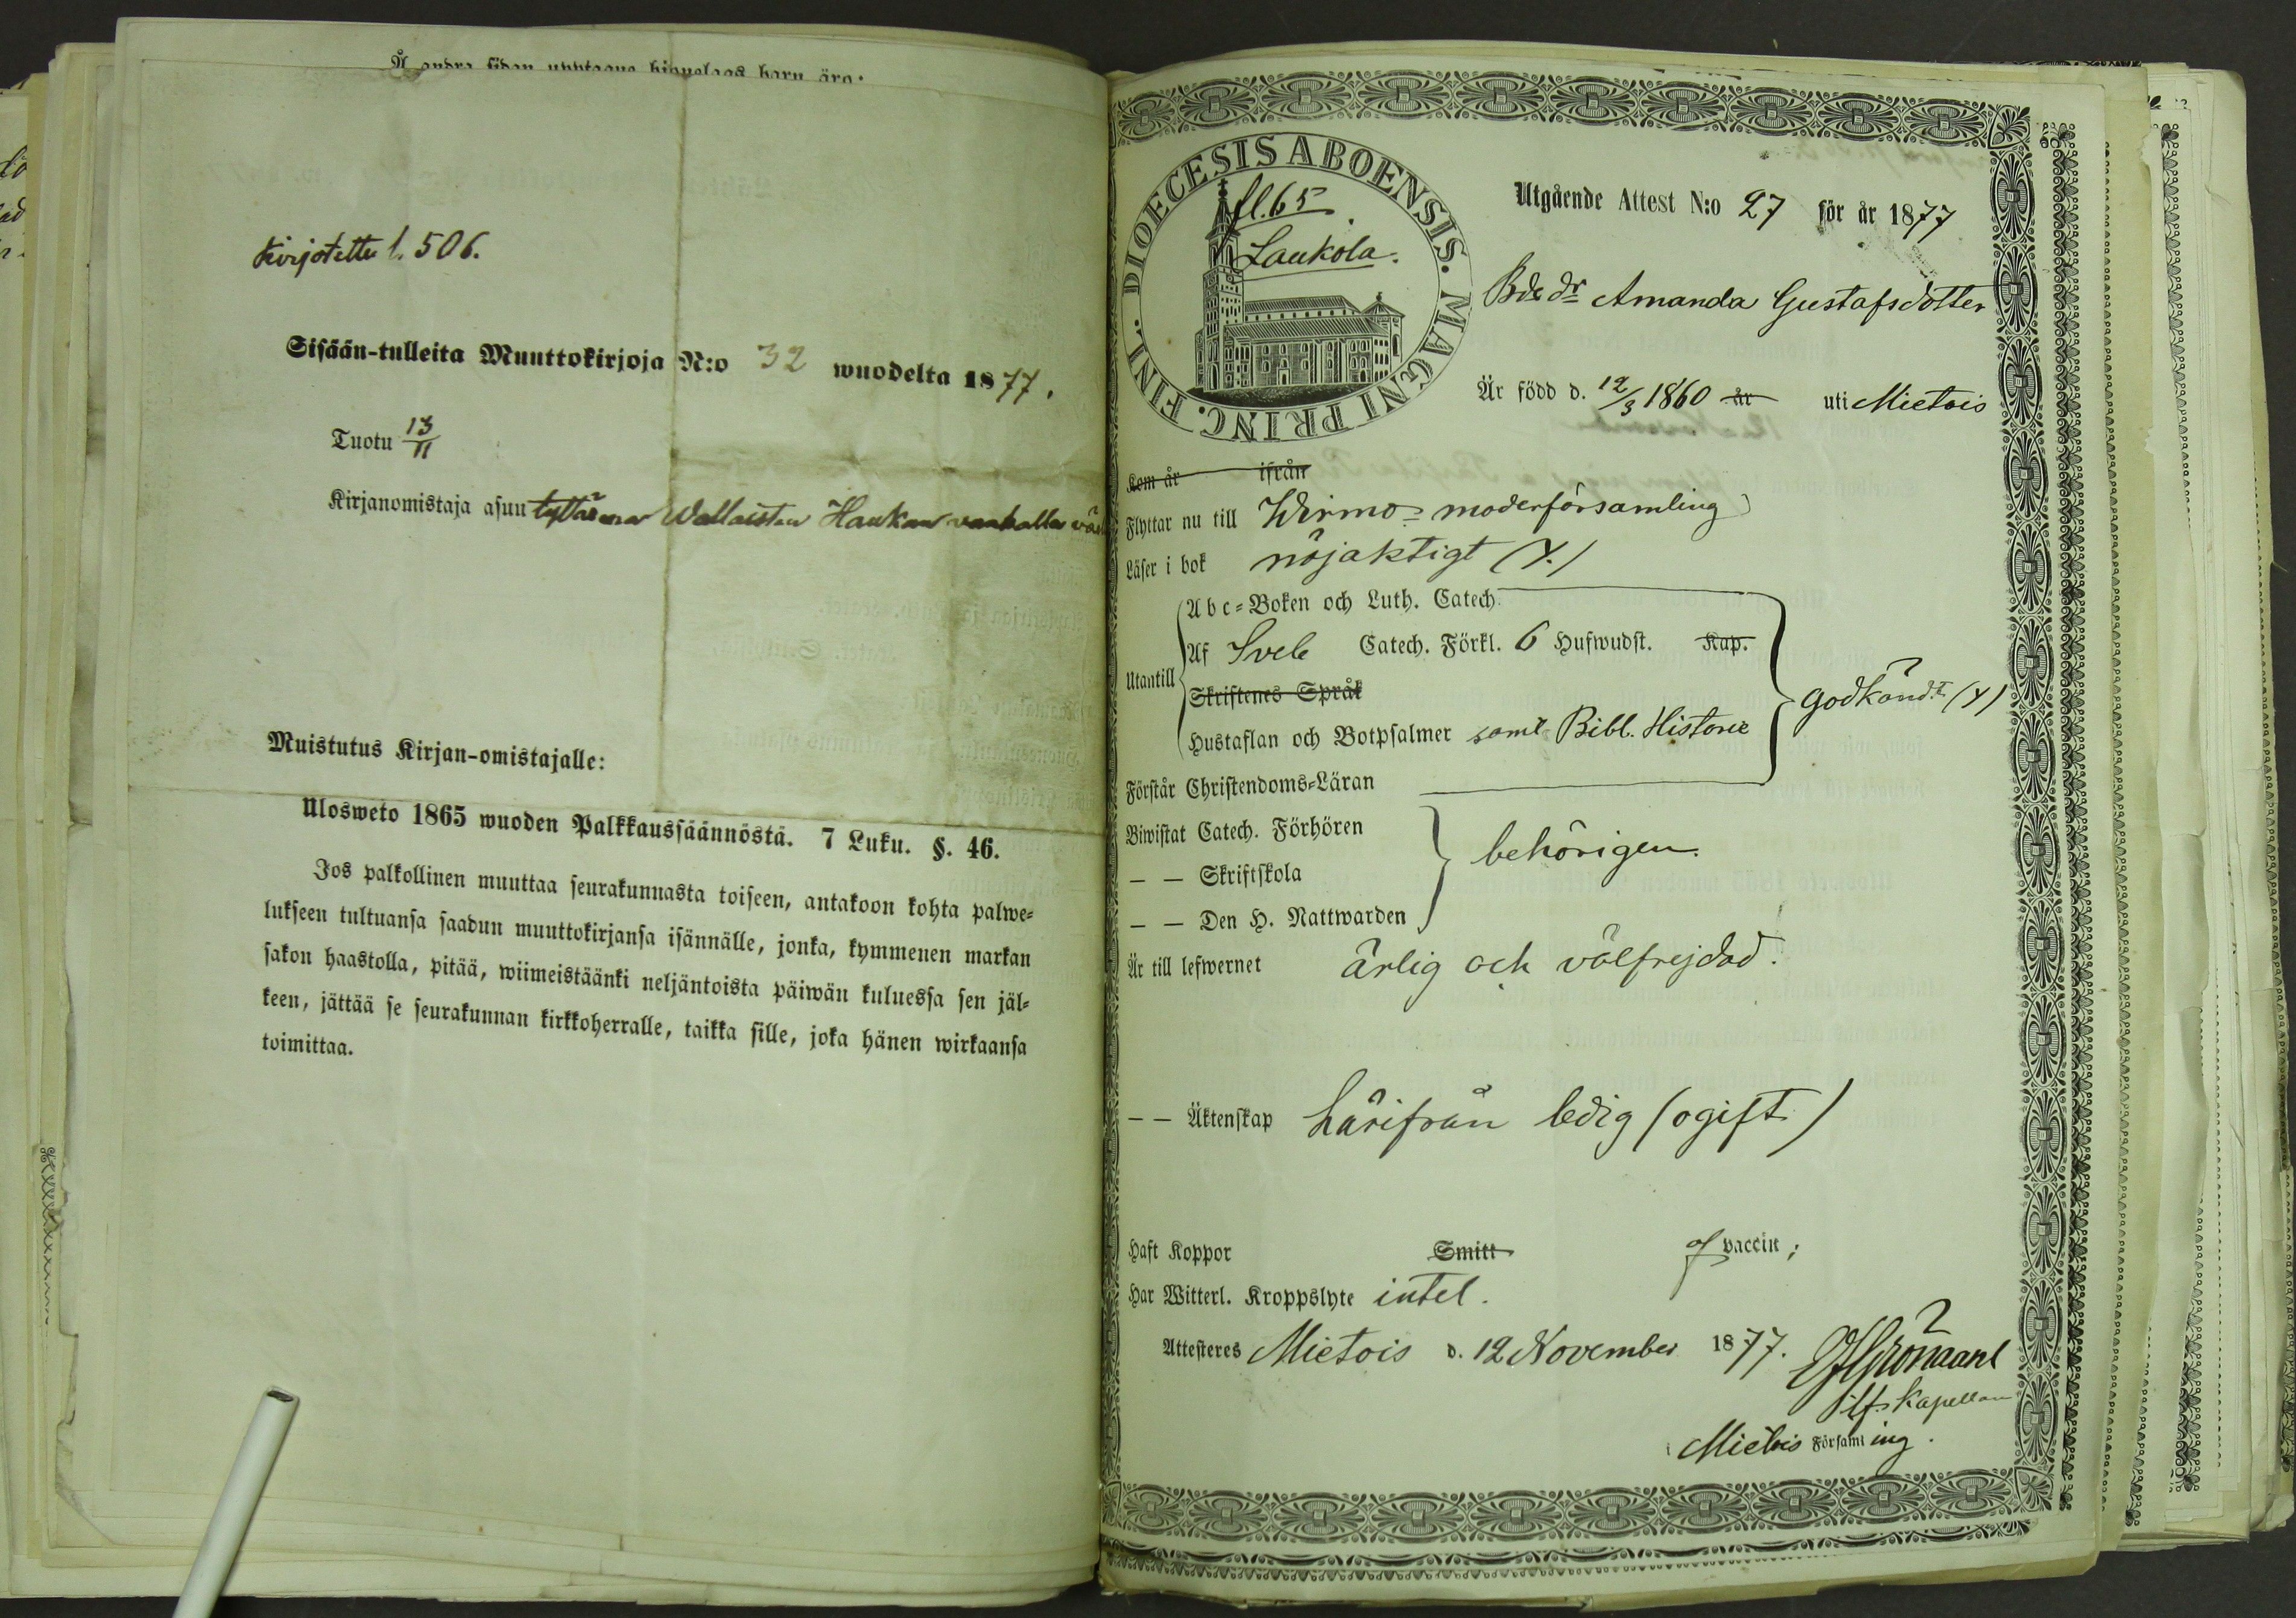 Å andra sidan upptagne hjonelags barn äro:
Kirjotettu l. 506.
Sisään-tulleita Muuttokirjoja N:o 32 wuodelta 1877.
Tuotu 13/11
Kirjanomistaja asuu tyttärenä Wallaisten Haukan
Muistutus Kirjan-omistajalle:
Ulosweto 1865 wuoden Palkkaussäännöstä. 7 Luku. §. 46.
Jos palkollinen muuttaa seurakunnasta toiseen, antakoon kohta palwe-
lukseen tultuansa saadun muuttokirjansa isännälle, jonka, kymmenen markan
sakon haastolla, pitää, wiimeistäänki neljäntoista päiwän kuluessa sen jäl-
keen, jättää se seurakunnan kirkkoherralle, taikka sille, joka hänen wirkaansa
toimittaa.
DIOECESIS ABOENSIS. MAGNI PRINC. FINL.
fl. 65
Laukola.
Utgående Attest N:o 27 för år 1877
Bdedr Amanda Gustafsdotter
Är född d. 12/3 1860 år uti Mietois
Kom år ifrån
Flyttar nu till Wirmo moderförsamling
Läser i bok nöjaktigt (Y.)
Utantill
Abc-Boken och Luth. Catech.
Af Sveb Catech. Förkl. 6 Hufwudst. Kap.
Skriftenes Språk
Hustaflan och Botpsalmer samt Bibl. Historie
godkändt (Y)
Förstår Christendoms-Läran
Biwistat Catech. Förhören
— — Skriftskola
— — Den H. Nattwarden
behörigen.
Är till lefwernet ärlig och välfrejdad.
— — Äktenskap härifrån ledig (ogift)
Haft Koppor Smitt af vaccin;
Har Witterl. Kroppslyte intet.
Attesteres Mietois d. 12 November 1877.
Grönvall
Kapellan
i Mietois Församling.